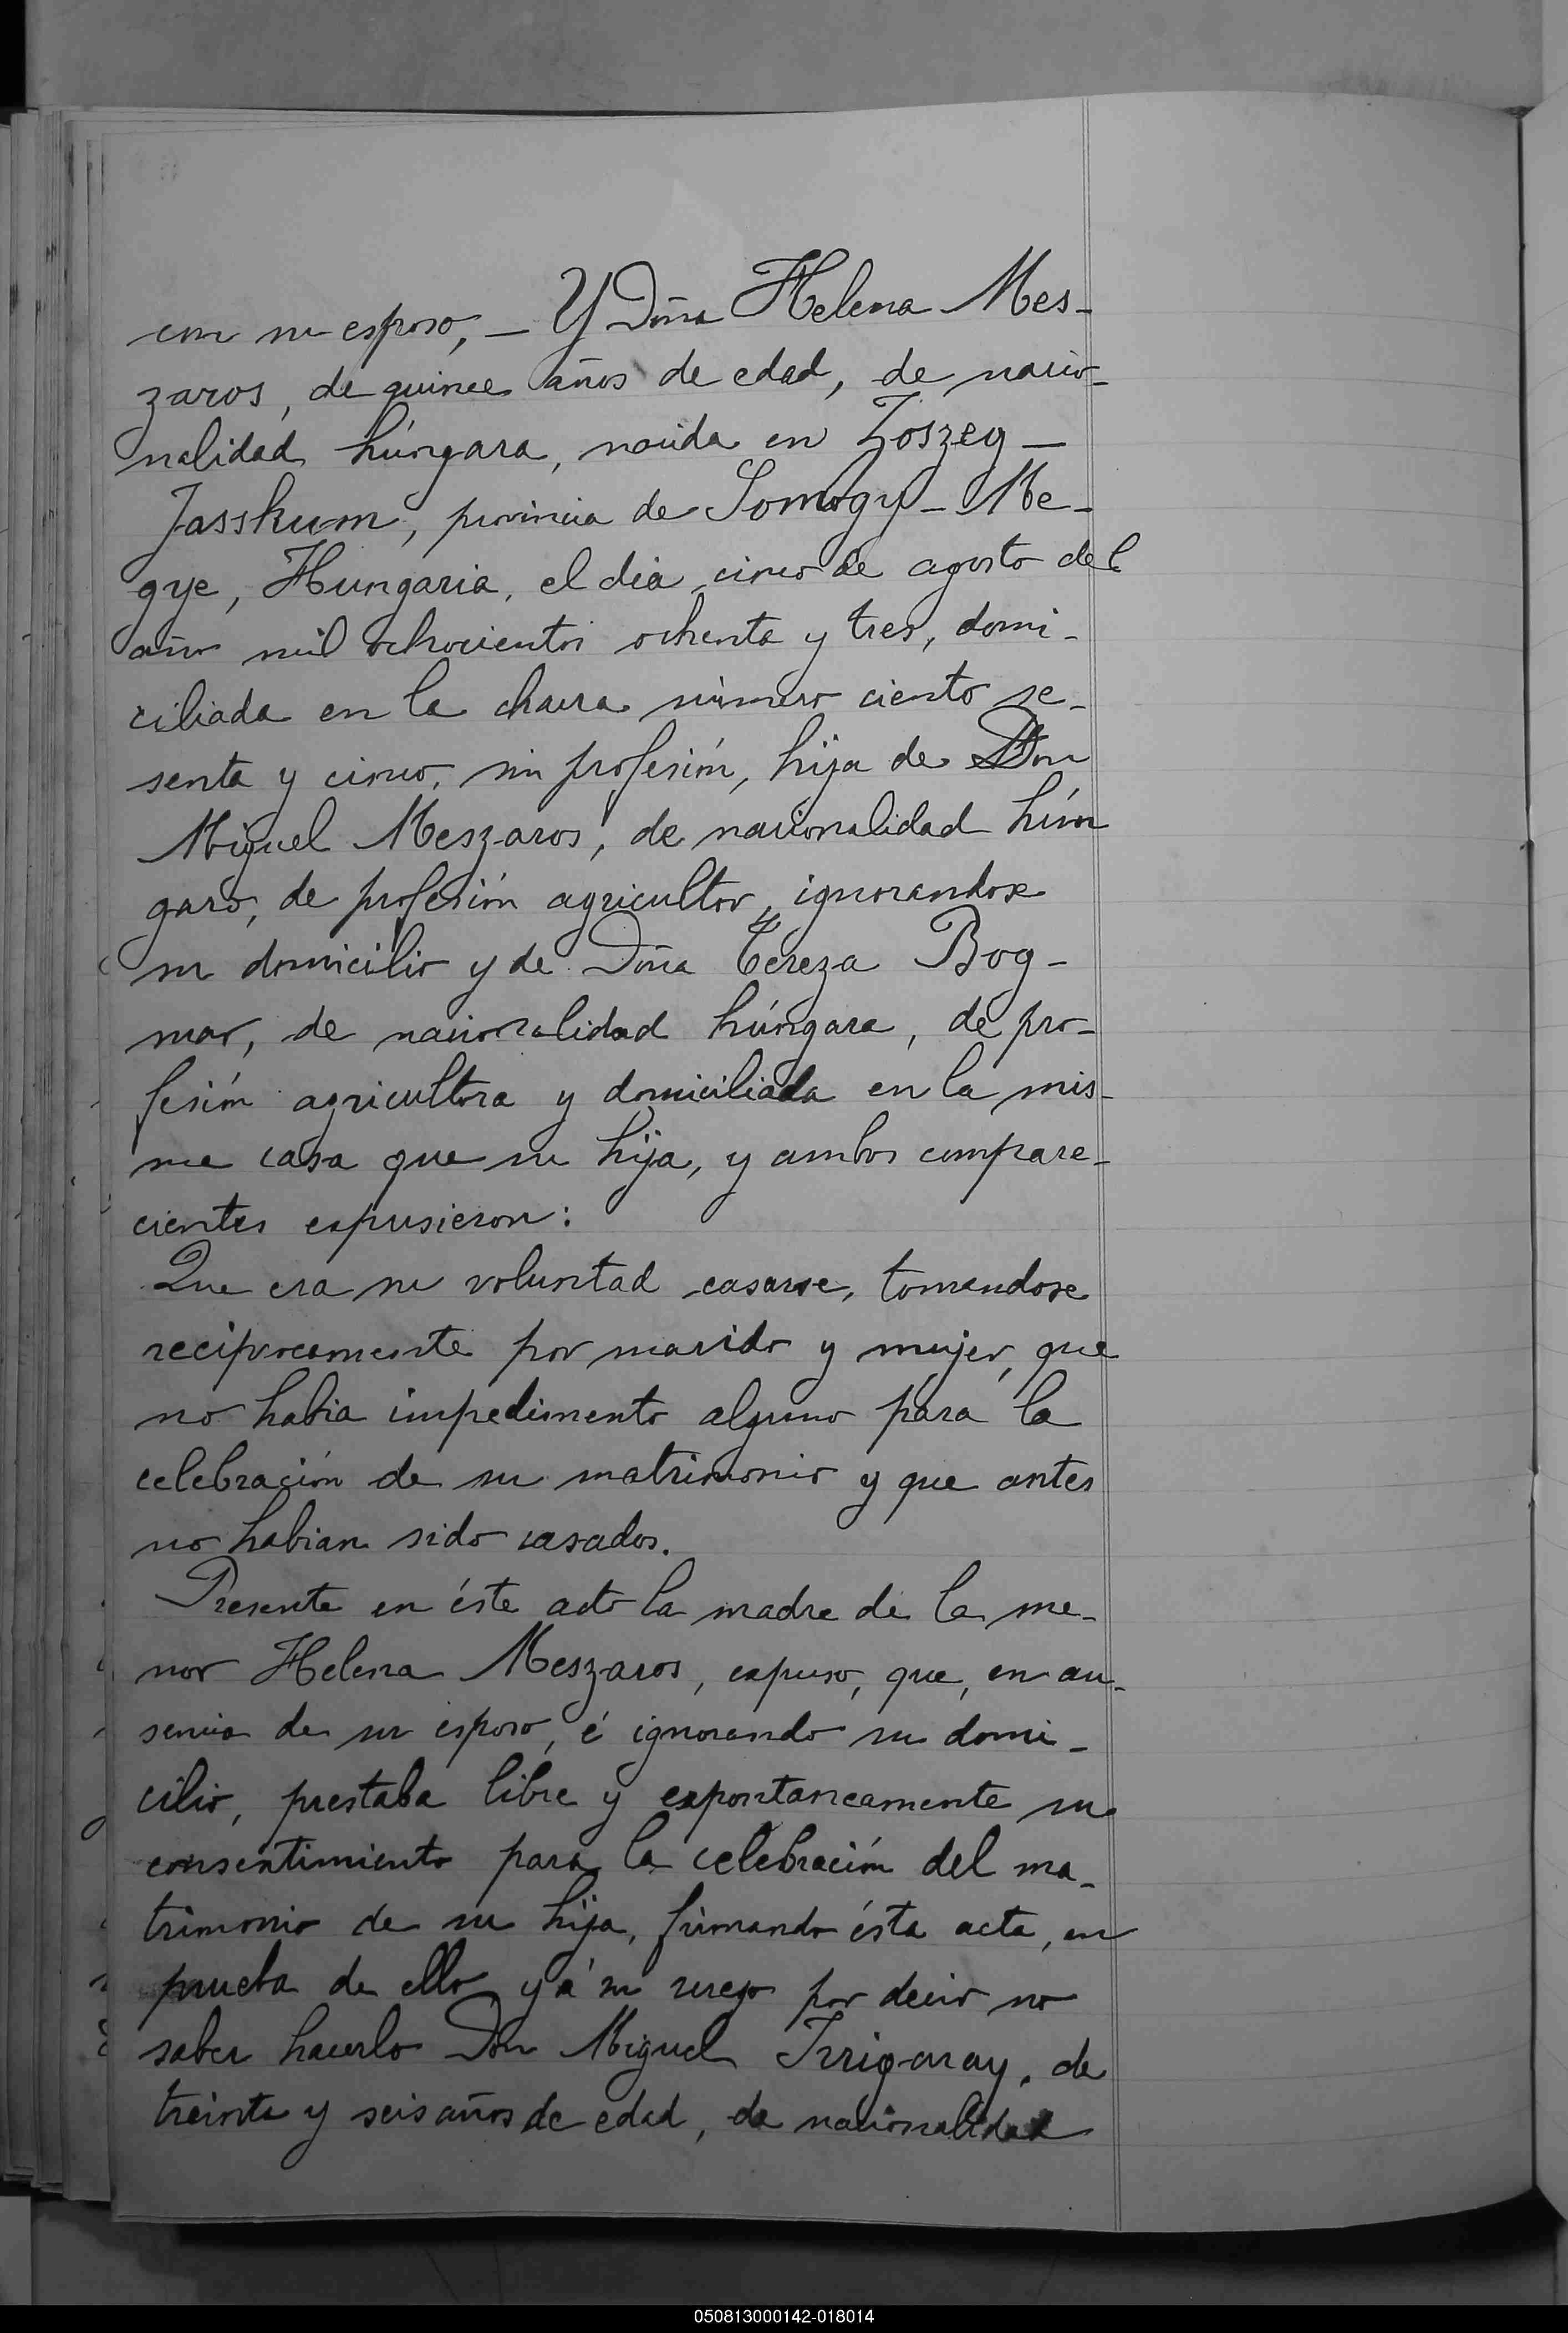 con su esposo, — Y Doña Helena Mes-
zaros, de quince años de edad, de nacio-
nalidad húngara, nacida en Zoszeg —
Jasskum, provincia de Somogy - Me-
gye, Hungaria, el dia cinco de agosto del
año mil ochocientos ochenta y tres, domi-
ciliada en la chacra número ciento se-
senta y cinco, sin profesión, hija de Don
Miguel Meszaros, de nacionalidad hún
garo, de profesión agricultor, ignorandose
su domicilio y de Doña Tereza Bog-
mar, de nacionalidad húngara, de pro-
fesión agricultora y domiciliada en la mis-
ma casa que su hija, y ambos compare-
cientes expusieron:
Que era su voluntad casarse, tomandose
reciprocamente por marido y mujer, que
no habia impedimento alguno para la
celebración de su matrimonio y que antes
no habian sido casados.
Presente en éste acto la madre de la me-
nor Helena Meszaros, expuso, que, en au-
sencia de su esposo, é ignorando su domi-
cilio, prestaba libre y expontaneamente su
consentimiento para la celebración del ma-
trimonio de su hija, firmando ésta acta, en
prueba de ello y á su ruego por decir no
saber hacerlo Don Miguel Irrigaray, de
treinta y seis años de edad, de nacionalidad
050813000142-018014